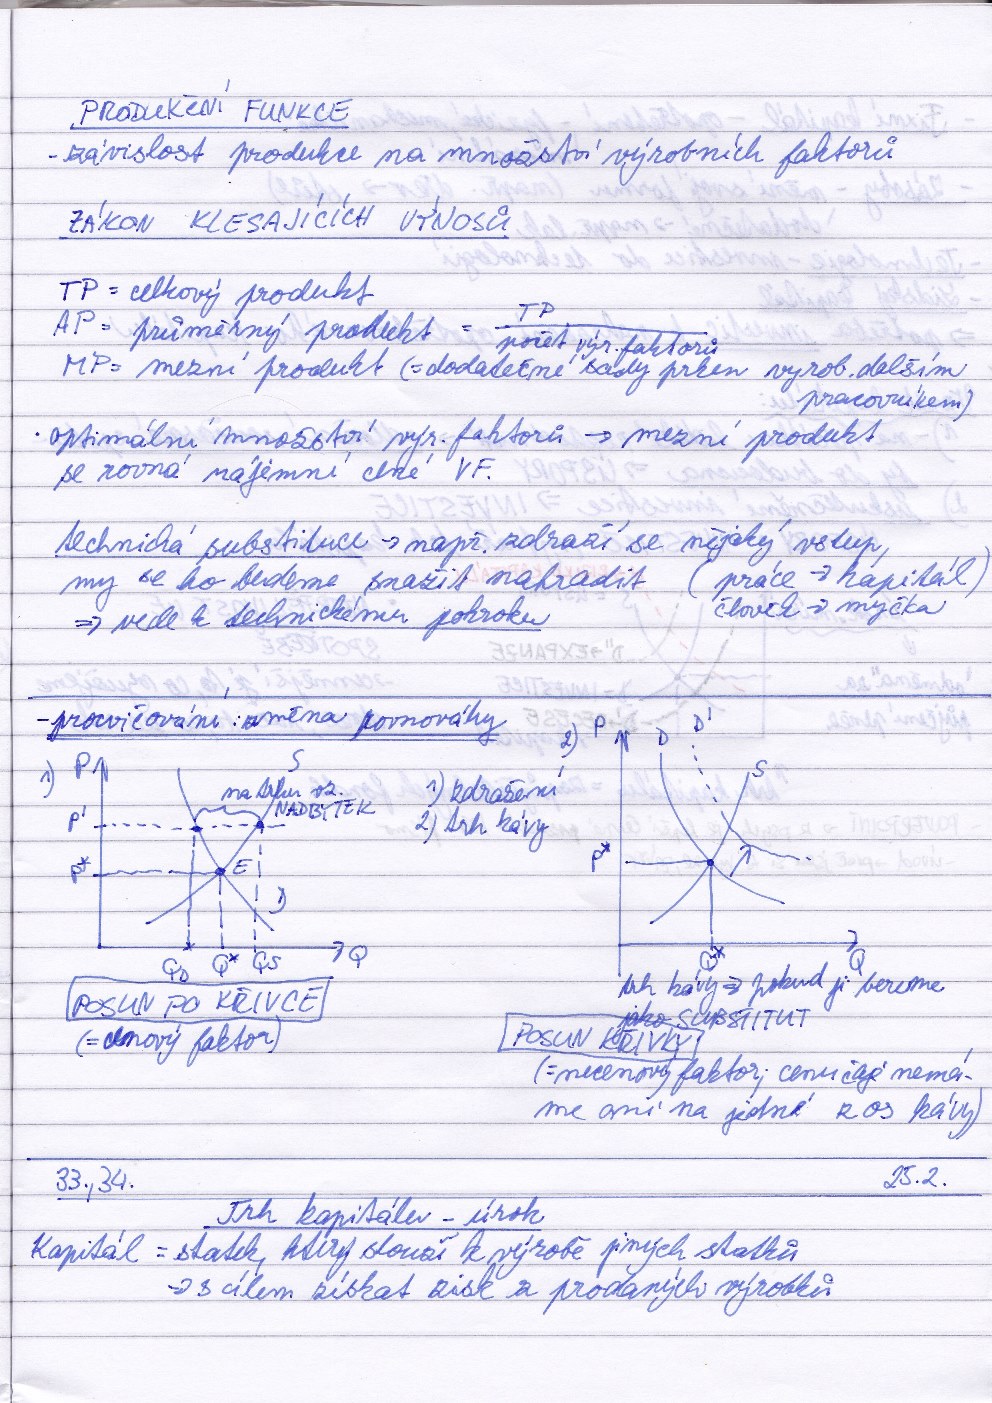 PRODUKČNÍ FUNKCE
- závislost produkce na množství výrobních faktorů
ZÁKON KLESAJÍCÍCH VÝNOSŮ
TP = celkový produkt
AP = průměrný produkt = TP
počet výr. faktorů
MP = mezní produkt (= dodatečné sady prken vyrob. dalším
pracovníkem)
· optimální množství výr. faktorů → mezní produkt
se rovná nájemní ceně VF.
technická substituce → např. zdraží se nějaký vstup,
my se ho budeme snažit nahradit (práce → kapitál)
⇒ vede k technickému pokroku člověk → myčka
- procvičování: změna rovnováhy
1) P S
na trhu vz.
NADBYTEK
P'
P* E
D
QD Q* QS Q
1) zdražení
2) trh kávy
2) P D D' S
P*
Q* Q
POSUN PO KŘIVCE
(= cenový faktor)
trh kávy ⇒ pokud ji bereme
jako SUBSTITUT
POSUN KŘIVKY
(= necenový faktor; cenu čaje nemá-
me ani na jedné z os kávy)
33., 34. 25.2.
Trh kapitálu - úrok
Kapitál = statek, který slouží k výrobě jiných statků
→ s cílem získat zisk z prodaných výrobků